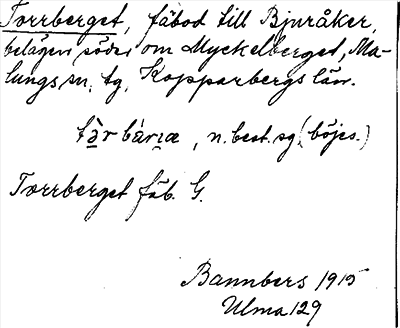 Torrberget, fäbod till Bjuråker,
belägen söder om Myckelberget, Ma-
lungs sn. tg, Kopparbergs län.
n. best. sg. (böjes.)
Torrberget fäb. G.
Bannbers 1915
Ulma 129